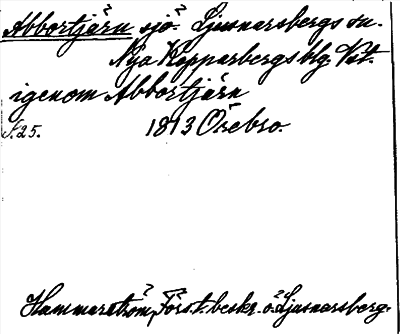 Abbortjärn sjö. Ljusnarsbergs sn.
Nya Kopparbergs blg. Väst.
igenom Abbortjärn
N. 25. 1813 Örebro.
Hammarström, Förs. t. beskr. ö. Ljusnarsberg.